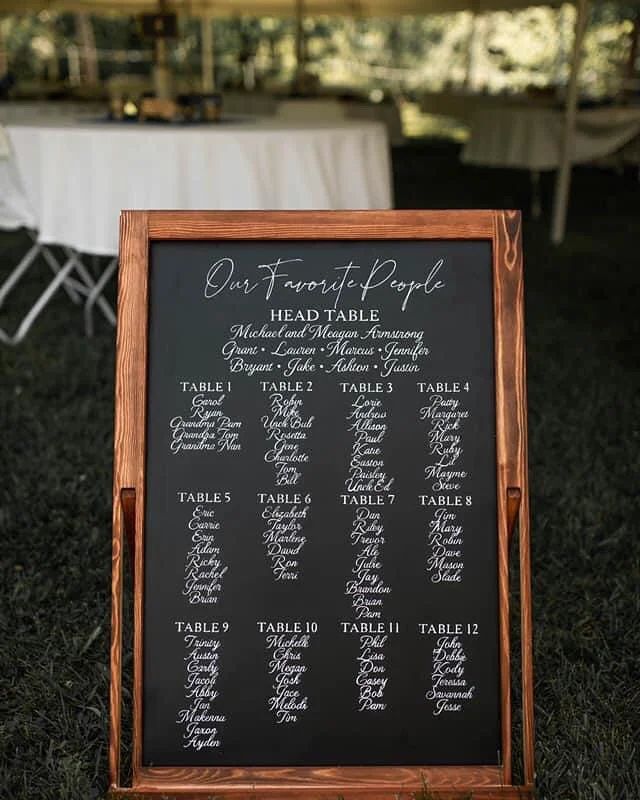 Our Favorite People
HEAD TABLE
Michael and Meagan Armstrong
Grant • Lauren • Marcus • Jennifer
Bryant • Jake • Ashton • Justin
TABLE 1
Carol
Ryan
Grandma Pam
Grandpa Tom
Grandma Nan
TABLE 2
Robyn
Mike
Uncle Bub
Rosetta
Gene
Charlotte
Tom
Bill
TABLE 3
Lorie
Andrew
Allison
Paul
Katie
Easton
Paisley
Uncle Ed
TABLE 4
Patty
Margaret
Rick
Mary
Ruby
Lil
Mayme
Steve
TABLE 5
Eric
Carrie
Erin
Adam
Ricky
Rachel
Jennifer
Brian
TABLE 6
Elizabeth
Taylor
Marlene
David
Ron
Terri
TABLE 7
Dan
Riley
Trevor
Ale
Julie
Jay
Brandon
Brian
Pam
TABLE 8
Jim
Mary
Robin
Dave
Mason
Slade
TABLE 9
Trinity
Austin
Carly
Jacob
Abby
Jan
Makenna
Jaxon
Ayden
TABLE 10
Michelle
Chris
Megan
Josh
Jace
Melodi
Tim
TABLE 11
Phil
Lisa
Don
Casey
Bob
Pam
TABLE 12
John
Debbie
Kody
Teressa
Savannah
Jesse